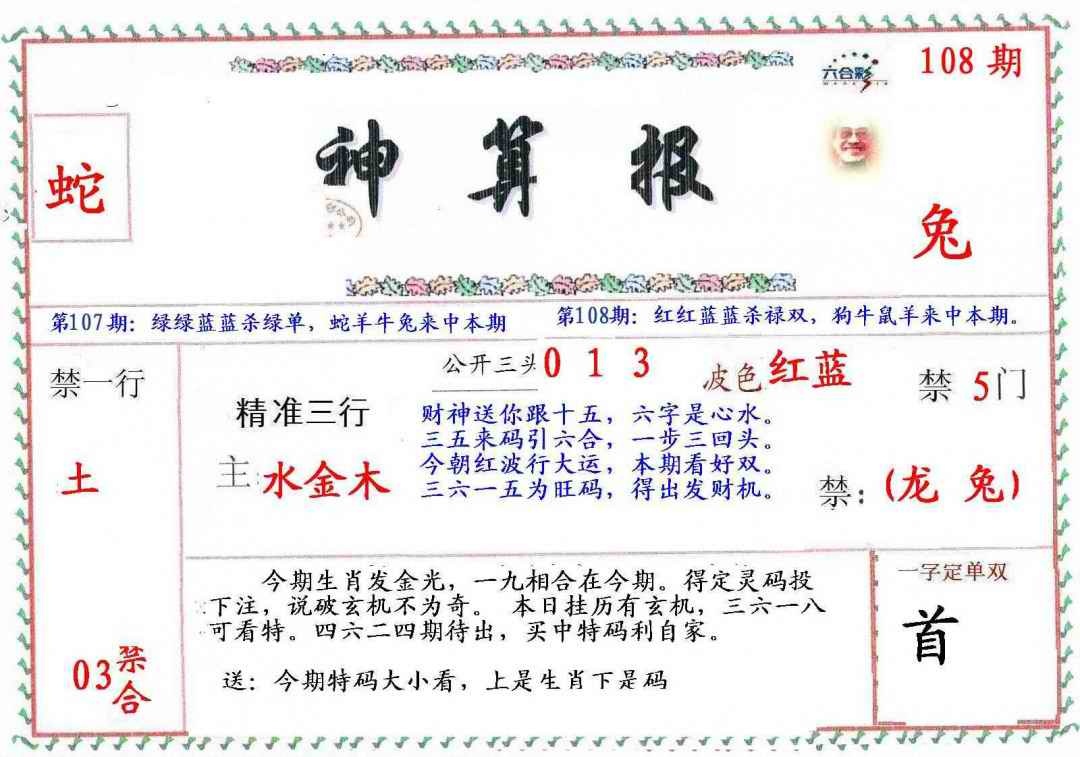 六合彩
108 期
神算报
蛇
兔
第107期：绿绿蓝蓝杀绿单，蛇羊牛兔来中本期
第108期：红红蓝蓝杀禄双，狗牛鼠羊来中本期。
禁一行
土
03禁合
公开三头0 1 3
波色红蓝
禁 5门
精准三行
主:水金木
财神送你跟十五，六字是心水。
三五来码引六合，一步三回头。
今朝红波行大运，本期看好双。
三六一五为旺码，得出发财机。
禁：(龙 兔)
今期生肖发金光，一九相合在今期。得定灵码投
下注，说破玄机不为奇。 本日挂历有玄机，三六一八
可看特。四六二四期待出，买中特码利自家。
送：今期特码大小看，上是生肖下是码
一字定单双
首